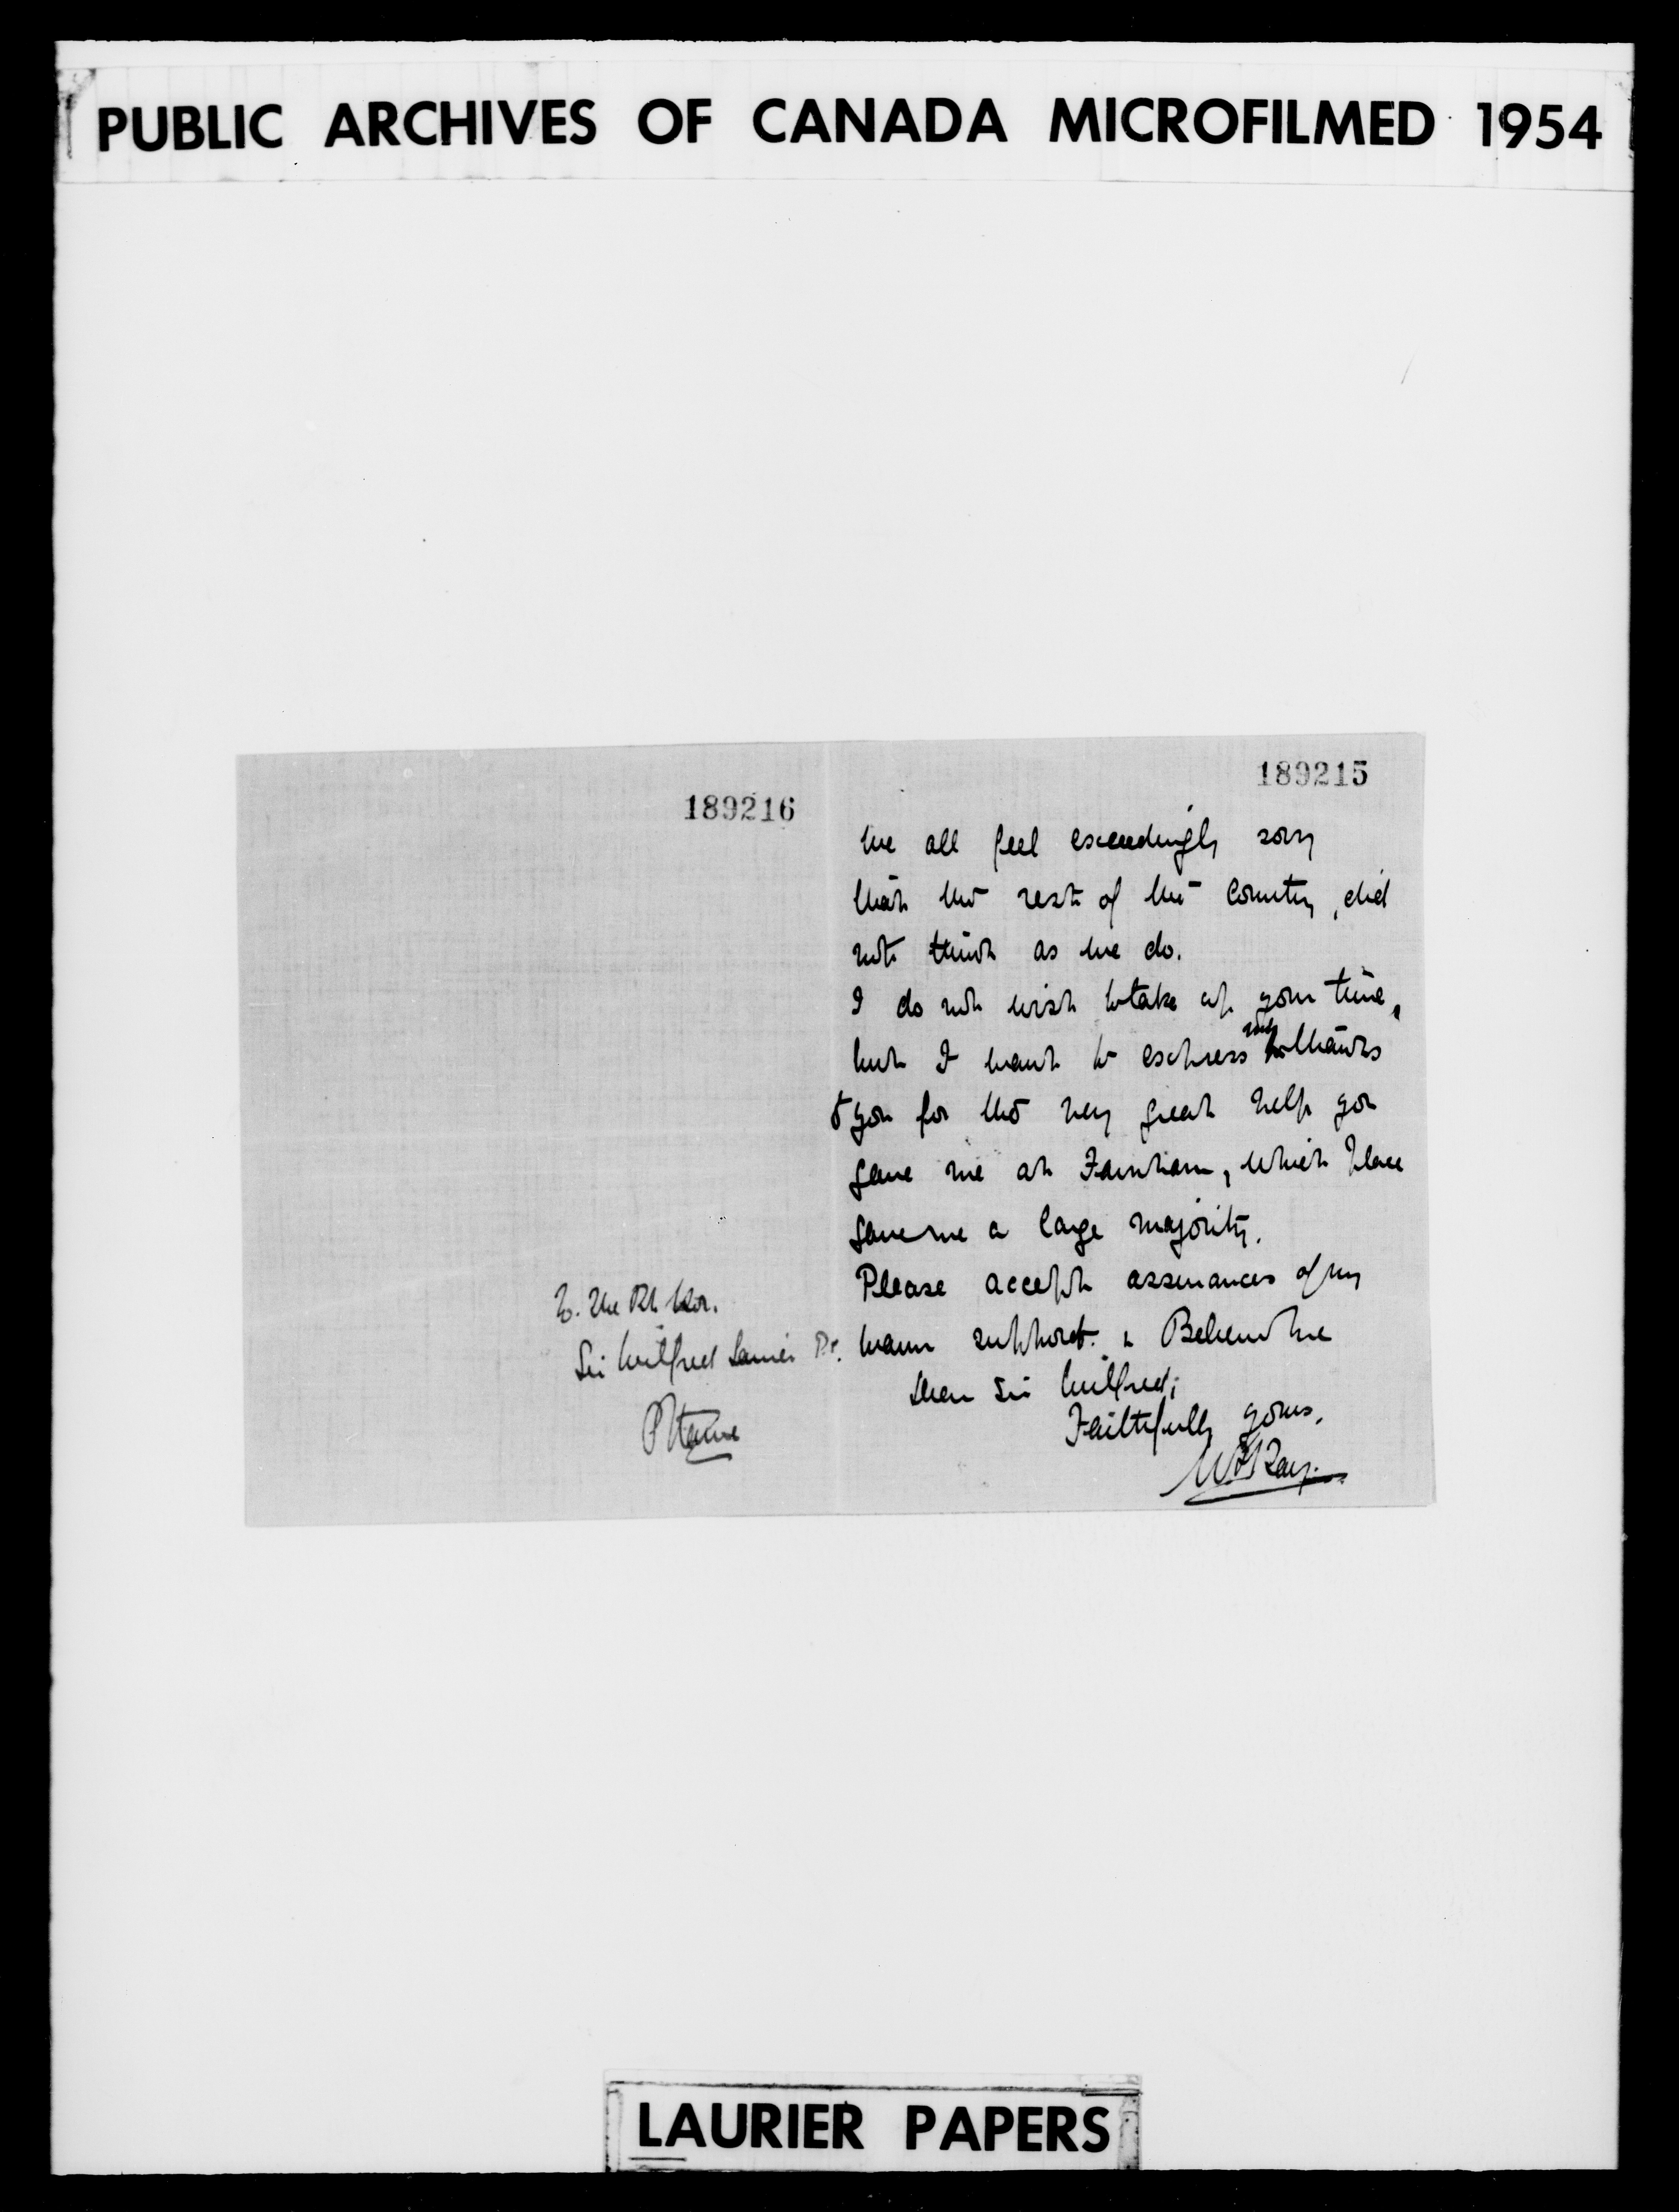 PUBLIC ARCHIVES OF CANADA MICROFILMED 1954
189216
To. The Rt. Hon.
Sir Wilfred Laurier P.C.
Ottawa
189215
We all feel exceedingly sorry
that the rest of the Country, did
not think as we do.
I do not wish to take up your time,
but I want to express my thanks
to you for the very great help you
gave me at Farnham, which place
gave me a large majority.
Please accept assurances of my
warm support. & Believe me
dear Sir Wilfred;
Faithfully yours,
LAURIER PAPERS